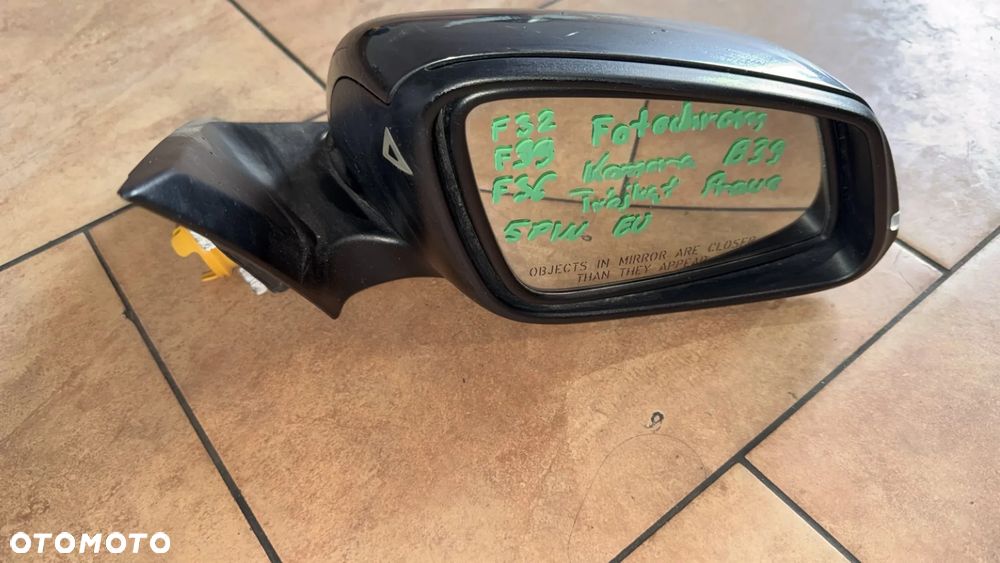 F32 Fotochrom
F39 Kamera B39
F36 Trójkąt Prawe
5PIN EU
OBJECTS IN MIRROR ARE CLOSER
THAN THEY APPEAR
OTOMOTO